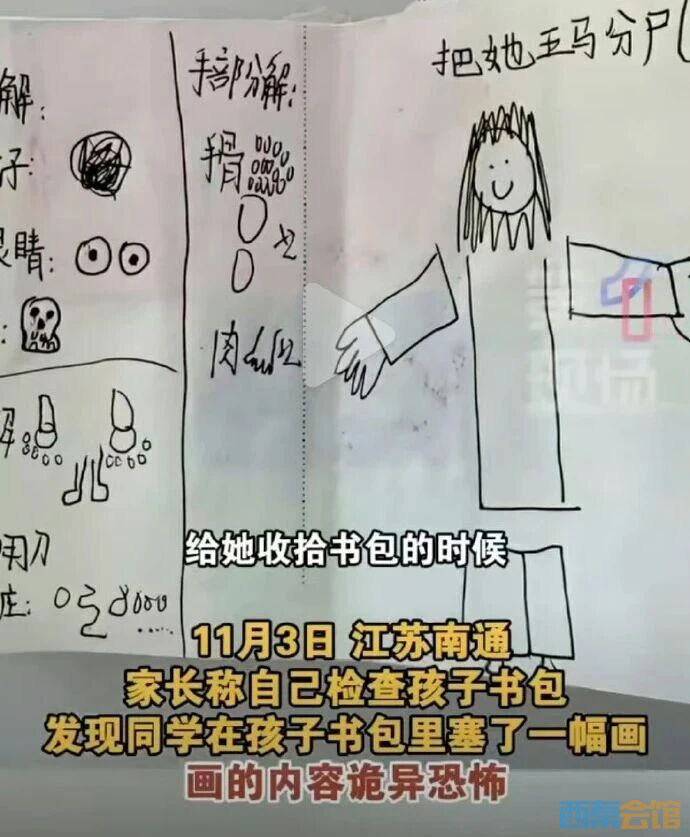 把她王马分尸
手部分解:
解:
手骨
子:
眼睛:
肉
解
用刀
给她收拾书包的时候
11月3日 江苏南通
家长称自己检查孩子书包
发现同学在孩子书包里塞了一幅画
画的内容诡异恐怖
西秦会馆